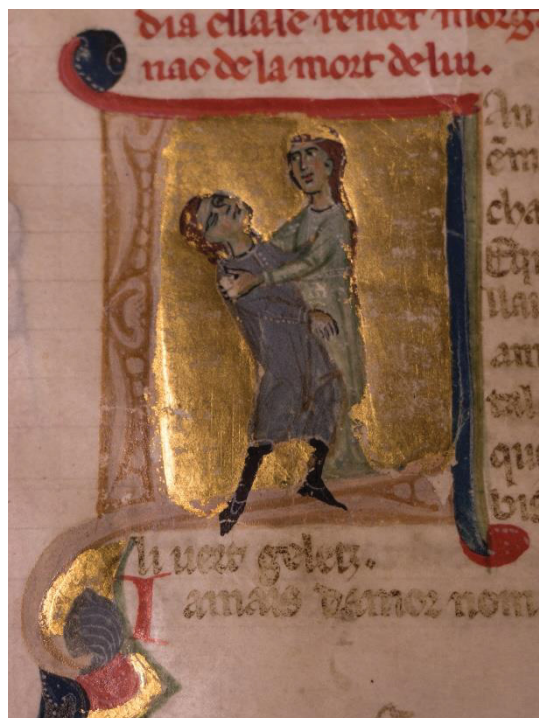 dia ella se rendet morg
nao de la mort de lui.
An
ēm
cha
Equ
llai
am
tal
que
bis
li uers geletz.
Iamais damor nom